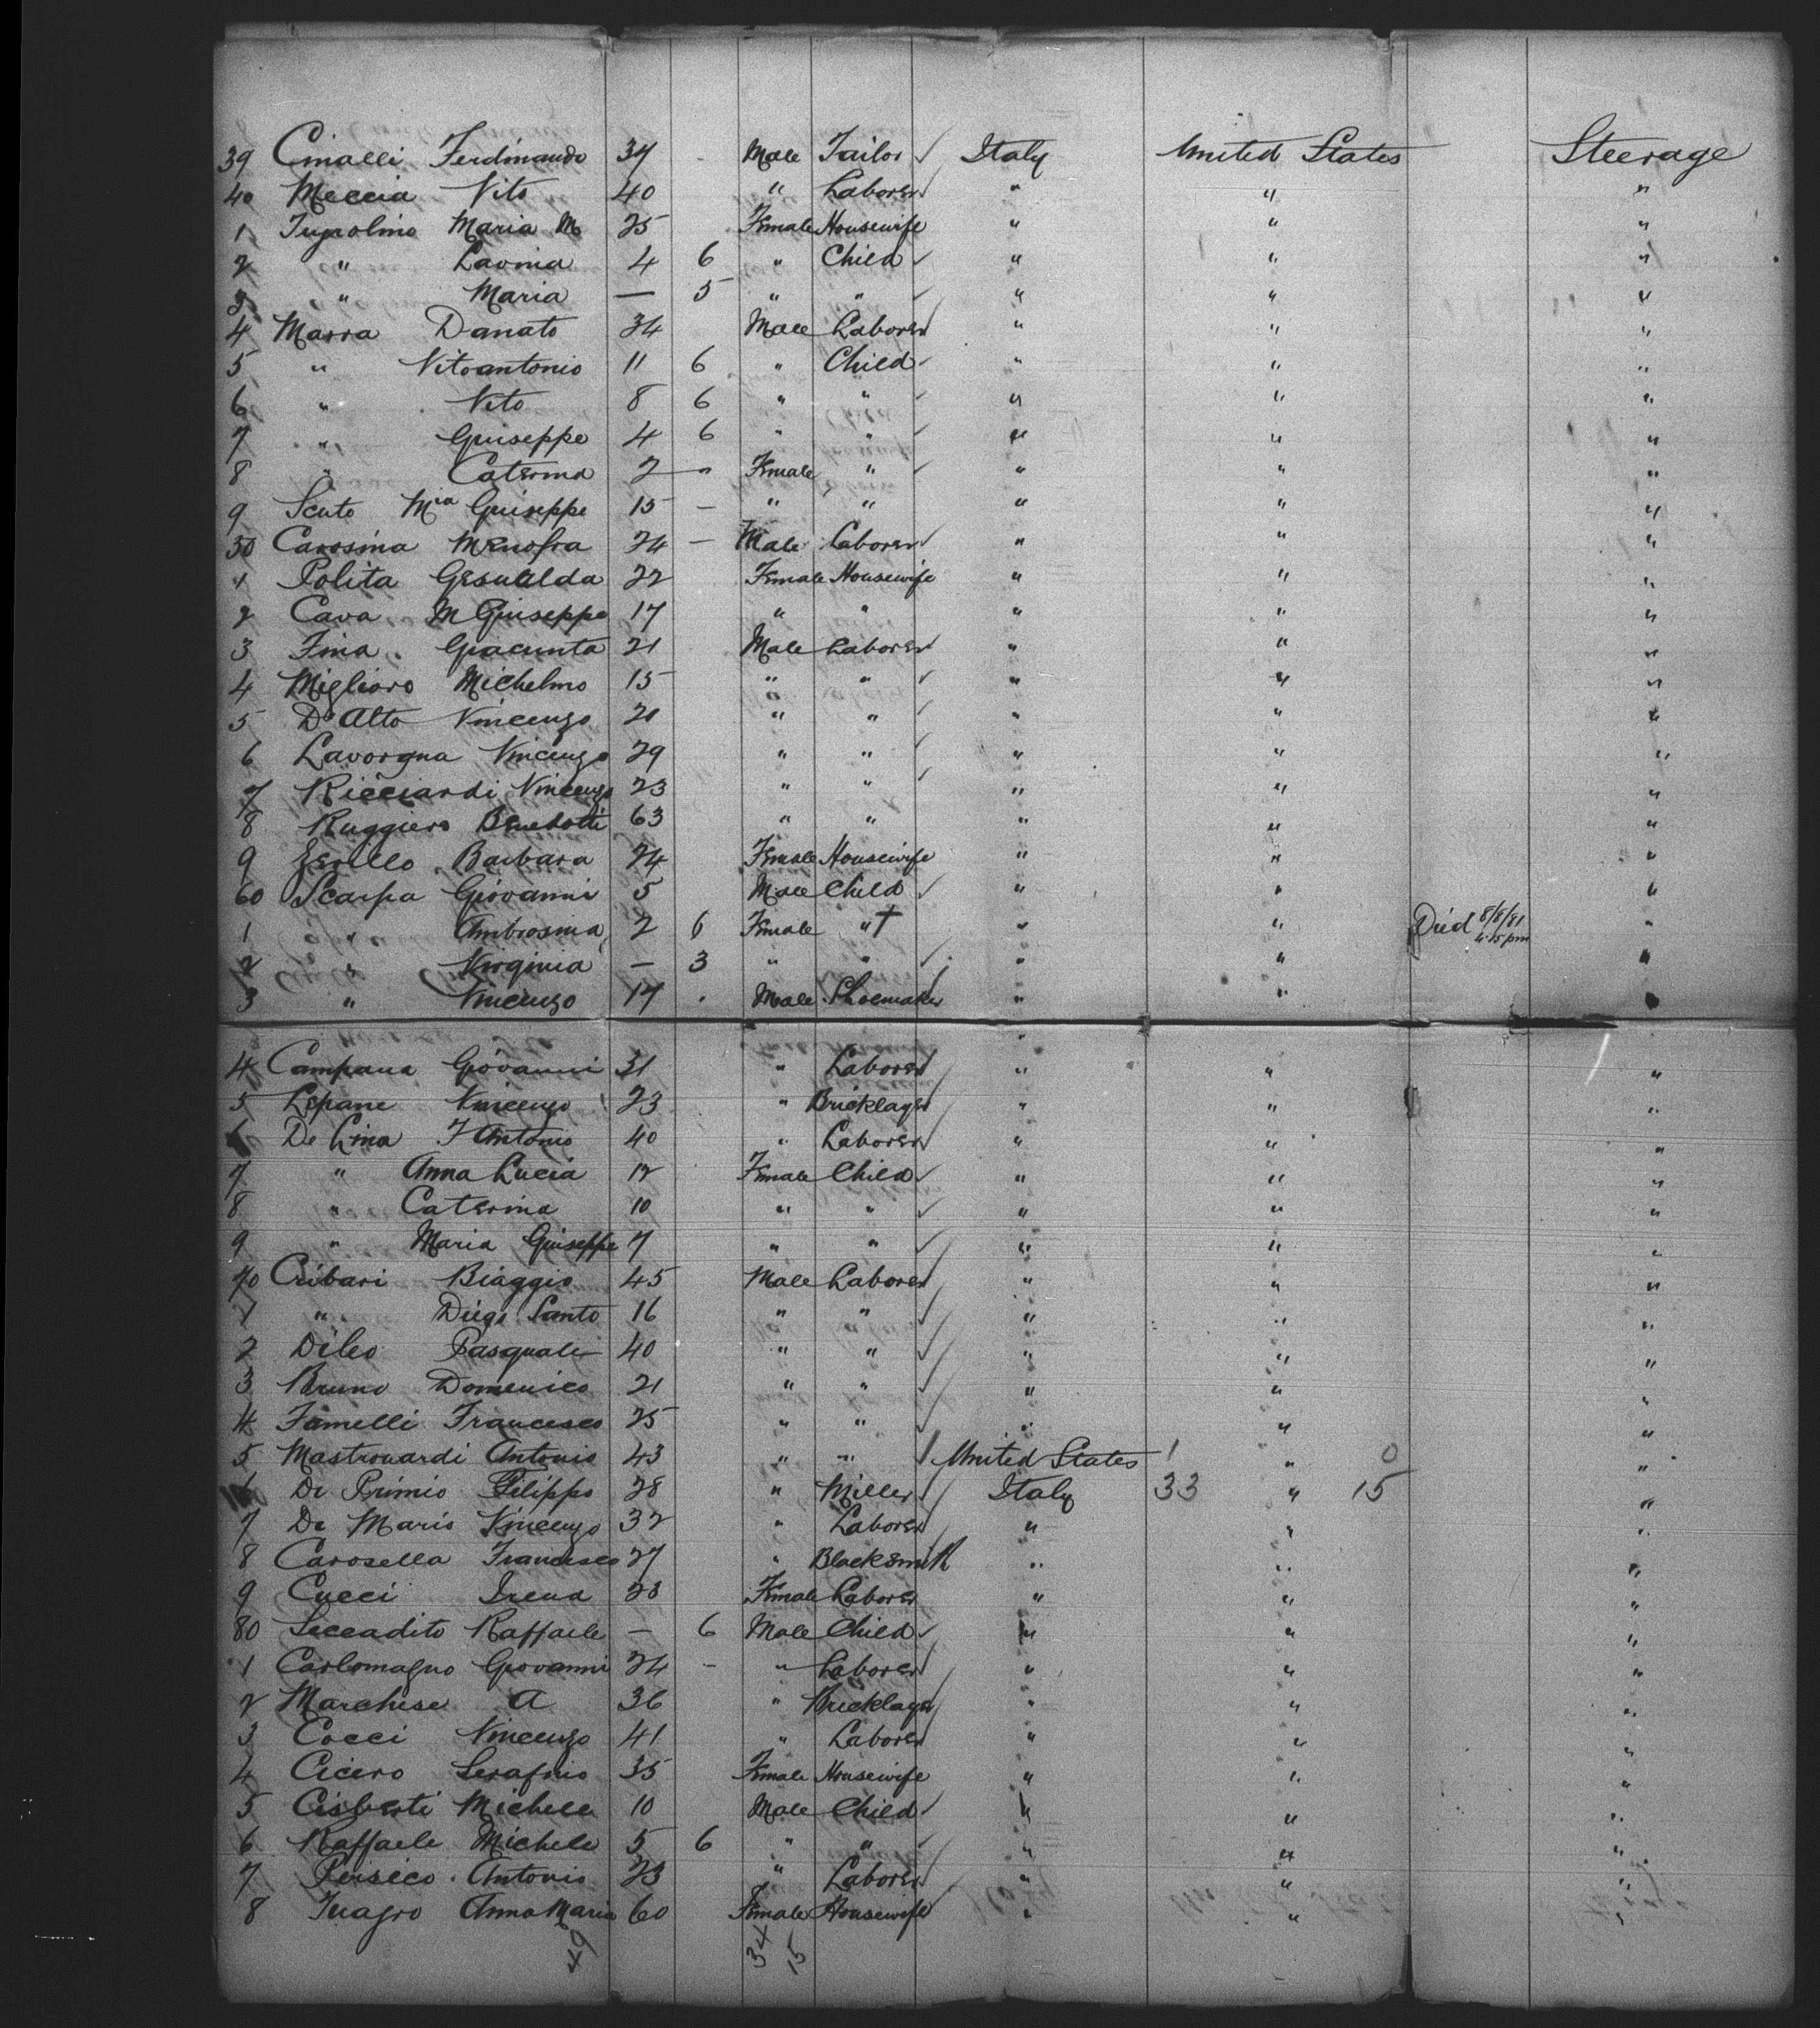 39 Cinalli Ferdinando 34 Male Tailor Italy United States Steerage
40 Meccia Vito 40 " Laborer " " "
1 Maria M 25 Female Housewife " " "
2 " Lavinia 4 6 " Child " " "
3 " Maria — 5 " " " " "
4 Marra Danato 34 Male Laborer " " "
5 " Vitoantonio 11 6 " Child " " "
6 " Vito 8 6 " " " " "
7 " Giuseppe 4 6 " " " " "
8 " Caterina 2 " Female " " " "
9 Scuto Mia Guiseppe 15 — " " " " "
50 Carosina Menofra 24 — Male Laborer " " "
1 Polita Gesualda 22 Female Housewife " " "
2 Cava M Guiseppe 17 " " " " "
3 Fina Giacunta 21 Male Laborer " " "
4 Migliaro Michelino 15 " " " " "
5 D'Alto Vincenzo 20 " " " " "
6 Lavorgna Vincenzo 29 " " " " "
7 Ricciardi Vincenzo 23 " " " " "
8 Ruggiero Benedotti 63 " " " " "
9 Zerillo Barbara 24 Female Housewife " " "
60 Scarpa Giovanni 5 Male Child " " "
1 " Ambrosina 2 6 Female " † " " Died 8/8/91 4.15 pm "
2 " Virginia — 3 " " " " "
3 " Vincenzo 17 Male Shoemaker " " "
4 Campana Giovanni 31 " Laborer " " "
5 Lepane Vincenzo 23 " Bricklayer " " "
6 De Lina F Antonio 40 " Laborer " " "
7 " Anna Lucia 12 Female Child " " "
8 " Caterina 10 " " " " "
9 " Maria Guiseppe 7 " " " " "
70 Cribari Biaggio 45 Male Laborer " " "
1 " Diego Santo 16 " " " " "
2 Dileo Pasquale 40 " " " " "
3 Bruno Domenico 21 " " " " "
4 Famelli Francesco 25 " " " " "
5 Mastrouardi Antonio 43 " " United States 1 " 0 "
6 De Primio Filippo 28 " Miller Italy 33 " 15 "
7 De Mario Vincenzo 32 " Laborer " " "
8 Carosella Francesco 27 " Blacksmith " " "
9 Cucci Irena 28 Female Laborer " " "
80 Leccadito Raffaele — 6 Male Child " " "
1 Carlomagno Giovanni 24 - " Laborer " " "
2 Marchese A 36 " Bricklayer " " "
3 Cocci Vincenzo 41 " Laborer " " "
4 Cicero Serafino 35 Female Housewife " " "
5 Cisberti Michele 10 Male Child " " "
6 Raffaele Michele 5 6 " " " " "
7 Persico Antonio 23 " Laborer " " "
8 Anna Maria 60 Female Housewife " " "
49 34 15